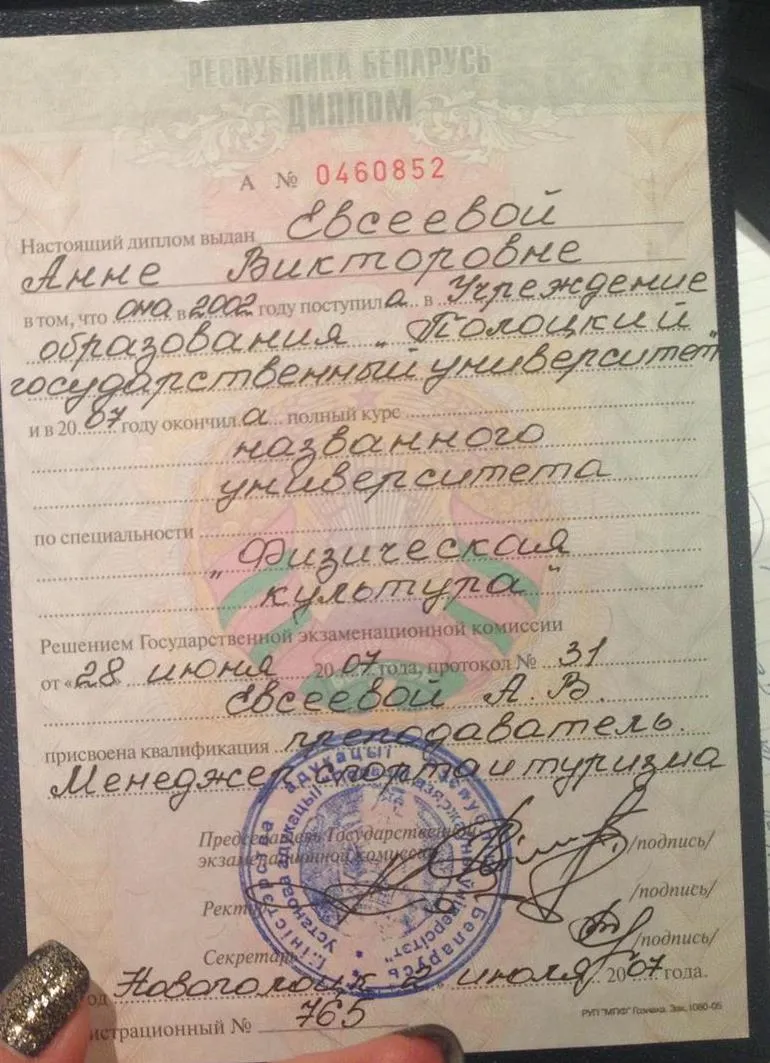 РЕСПУБЛИКА БЕЛАРУСЬ
ДИПЛОМ
А № 0460852
Настоящий диплом выдан Евсеевой
Анне Викторовне
в том, что она в 2002 году поступила в Учреждение
образования „Полоцкий
государственный университет"
и в 2007 году окончила полный курс
названного
университета
по специальности
„Физическая
культура"
Решением Государственной экзаменационной комиссии
от «28» июня 2007 года, протокол № 31
Евсеевой А. В.
присвоена квалификация преподаватель.
Менеджер спорта и туризма
Председатель Государственной
экзаменационной комиссии /подпись/
Ректор /подпись/
Секретарь /подпись/
од Новополоцк 2 июля 2007 года.
истрационный № 765
РУП "МПФ" Гознака. Зак. 1080-05
Міністэрства адукацыі Рэспублікі Беларусь
Установа адукацыі дзяржаўны ўніверсітэт"